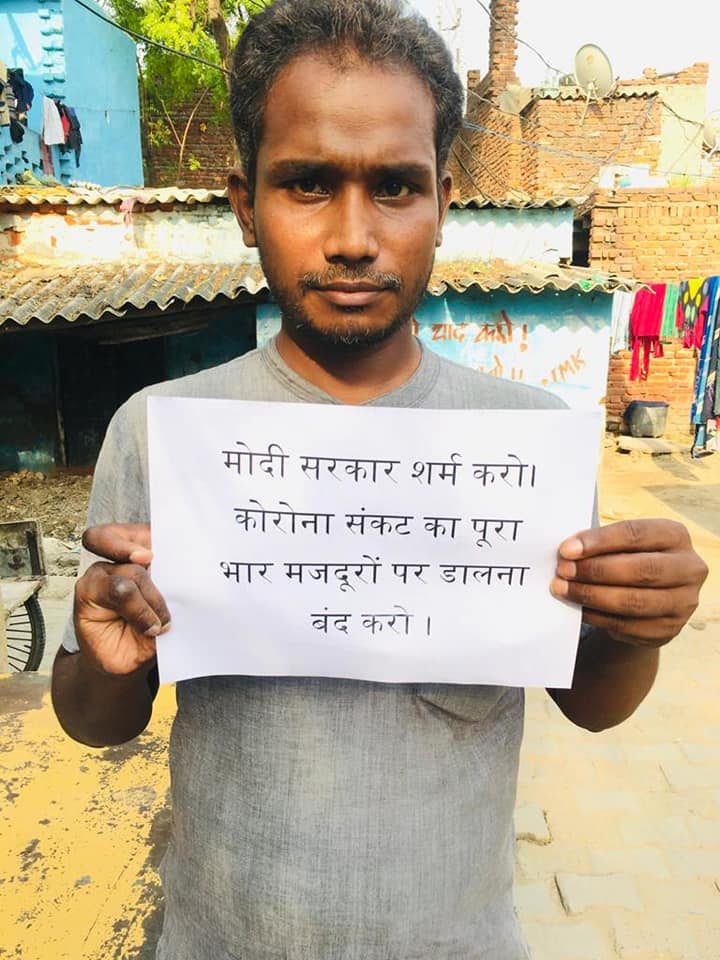 याद करो!
!! .. IMK
मोदी सरकार शर्म करो।
कोरोना संकट का पूरा
भार मजदूरों पर डालना
बंद करो ।